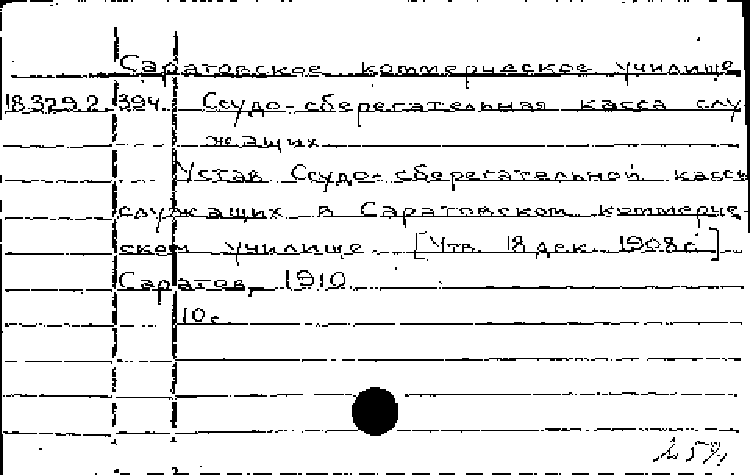 Саратовское коммерческое училище.
18.329.2.394. Ссудо-сберегательная касса слу
жащих
Устав Ссудо-сберегательной кассы
служащих в Саратовском коммерче-
ском училище. [Утв. 18 дек. 1908 г.]
Саратов, 1910.
10 с.